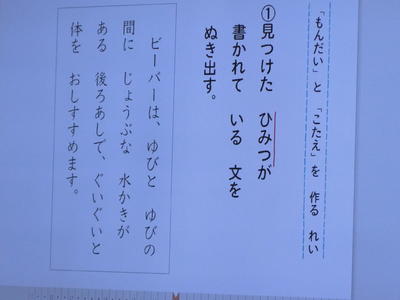 「もんだい」と 「こたえ」を 作る れい
①見つけた ひみつが
書かれて いる 文を
ぬき出す。
ビーバーは、ゆびと ゆびの
間に じょうぶな 水かきが
ある 後ろあしで、ぐいぐいと
体を おしすすめます。